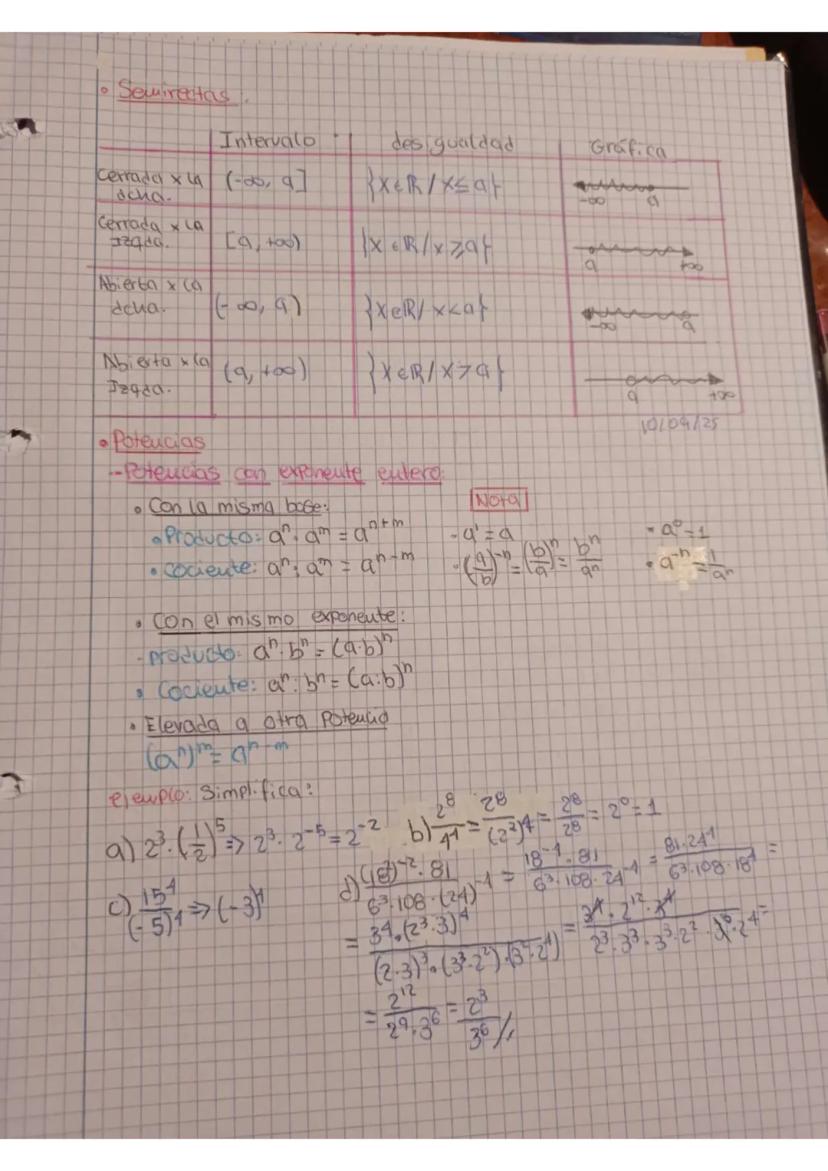 • Semirectas.
Intervalo desigualdad Gráfica
Cerrada x la dcha. (-∞, a] {x∈R/x≤a} -∞ a
Cerrada x la Izqda. [a, +∞) {x∈R/x≥a} a +∞
Abierta x la dcha. (-∞, a) {x∈R/x<a} -∞ a
Abierta x la Izqda. (a, +∞) {x∈R/x>a} a +∞
10/09/25
• Potencias
- Potencias con exponente entero:
• Con la misma base: Nota
• Producto: aⁿ · aᵐ = aⁿ⁺ᵐ - a¹ = a • a⁰ = 1
• Cociente: aⁿ : aᵐ = aⁿ⁻ᵐ • (a/b)⁻ⁿ = (b/a)ⁿ = bⁿ/aⁿ • a⁻ⁿ = 1/aⁿ
• Con el mismo exponente:
- producto: aⁿ · bⁿ = (a·b)ⁿ
• Cociente: aⁿ : bⁿ = (a:b)ⁿ
• Elevada a otra Potencia
(aⁿ)ᵐ = aⁿ·ᵐ
ejemplo: Simplifica:
a) 2³ · (1/2)⁵ => 2³ · 2⁻⁵ = 2⁻² b) 2⁸/4⁴ = 2⁸/(2²)⁴ = 2⁸/2⁸ = 2⁰ = 1
c) 15⁴/(-5)⁴ => (-3)⁴ d) (18²)⁻² · 81/6³ · 108 · (24)⁻⁴ = 18⁻⁴ · 81/6³ · 108 · 24⁻⁴ = 81 · 24⁴/6³ · 108 · 18⁴ =
= 3⁴ · (2³ · 3)⁴/(2·3)³ · (3³ · 2²) · = 3⁴ · 2¹² · 3⁴/2³ · 3³ · 3³ · 2² · 2⁴ =
= 2¹²/2⁹ · 3⁶ = 2³/3⁶